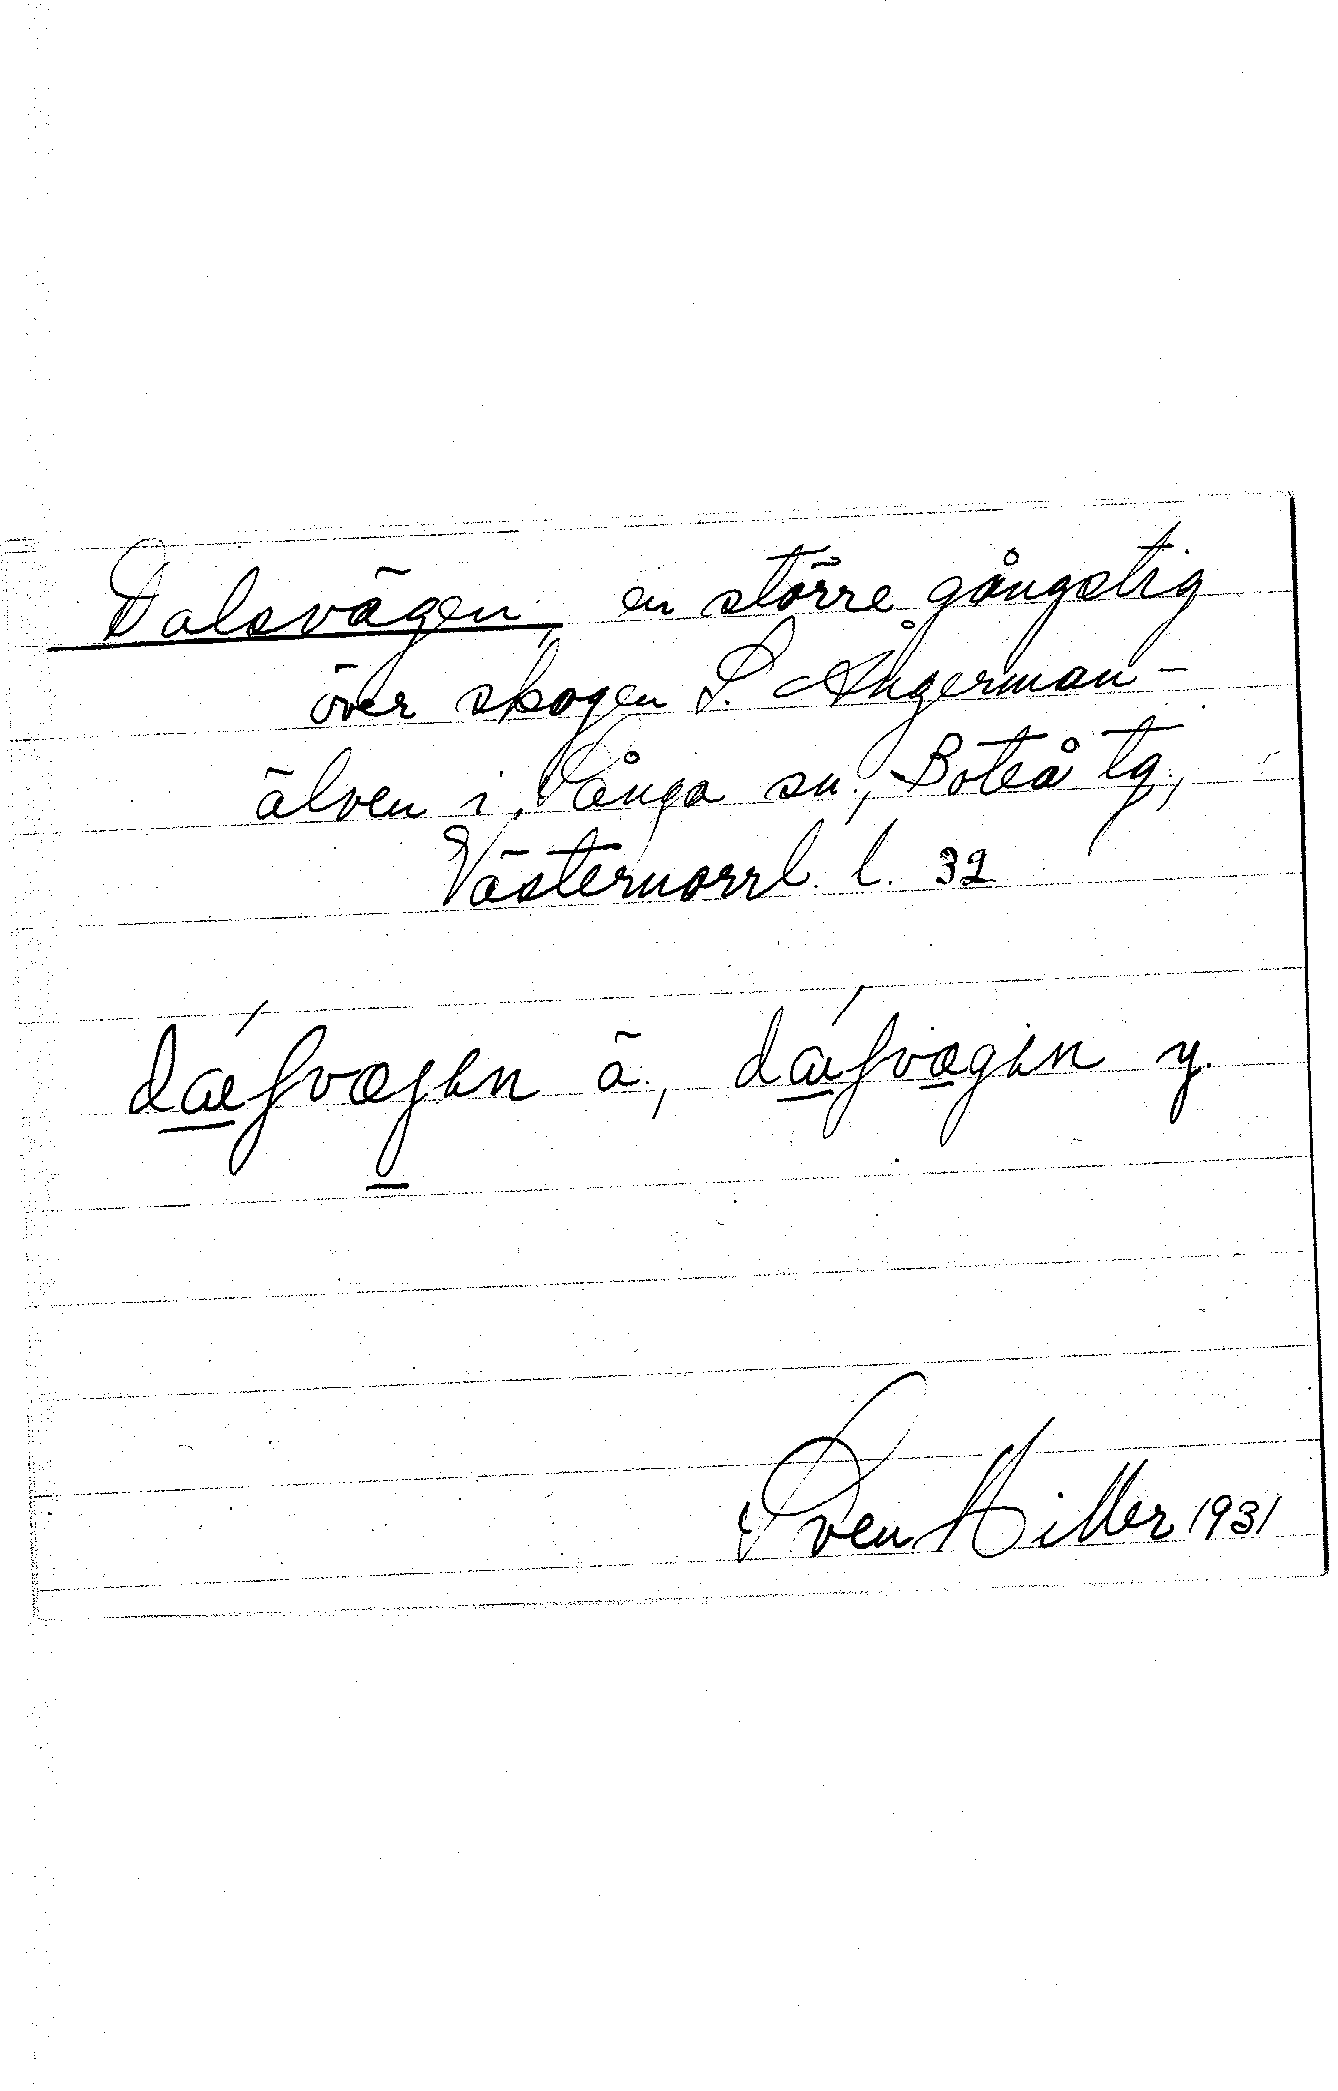 Dalsvägen, en större gångstig
över skogen S. Ångerman-
älven i Sånga sn, Boteå tg,
Västernorrl. l. 32
ä., y.
Sven Hiller 1931